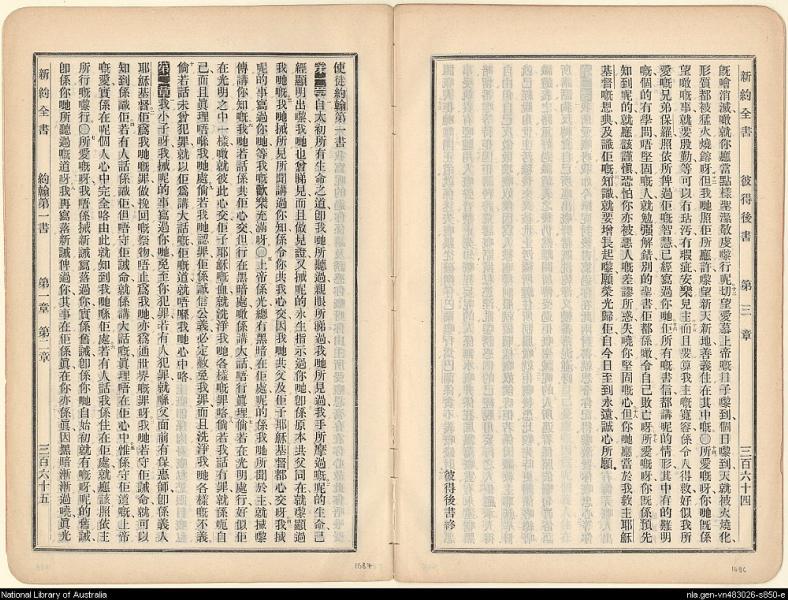 新約全書　彼得後書　第三章　三百六十四
既噲消滅噉就你應當點樣聖潔敬虔嚟行呢切望愛慕上帝嘅日子嚟到個日嚟到天就被火燒化
形質都被猛火熔呀但我哋照佢所應許嚟望新天新地善義住在其中嘅◎所愛嘅呀你哋既係
望噉嘅事就要殷勤等可以冇玷污冇瑕疵安樂見主而且要算我主嘅寬容係令人得救好似我所
愛嘅兄弟保羅照依所俾過佢嘅智慧已經寫過你哋佢所有嘅書信都講呢的情形其中有的難明
嘅個的冇學問唔堅固嘅人就勉強解錯別的聖書佢都係噉令自己敗亡呀所愛嘅呀你既係預先
知到呢的就應該謹愼恐怕你亦被惡人嘅差謬所惑失嘵你堅固嘅心但你哋應當於我救主耶穌
基督嘅恩典及識佢嘅知識就要增長起嚟願榮光歸佢自今日至到永遠誠心所願
彼得後書終
使徒約翰第一書
第一章自太初所有生命之道卽我哋所聽過親眼所睇過我哋所見過我手所摩過嘅呢的生命已
經顯明出嚟我哋也曾睇見而且做見證又𢬿呢的永生指示過你哋卽係原本共父同在就嚟顯過
我哋嘅我哋𢬿所見所聞講過你知係令你共我心交因我哋共父及佢子耶穌基督都心交呀我𢬿
呢的事寫過你哋等我嘅歡樂充滿呀◎上帝係光總冇黑暗在佢處呢的係我哋所聞於主就𢬿嚟
傳講你知嘅我哋若話係共佢心交但行在黑暗處噉係講大話唔行眞理倘若在光明處行好似佢
在光明之中一樣噉就彼此心交佢子耶穌嘅血就洗淨我哋各樣嘅罪咯倘若我話冇罪就係呃自
已而且眞理唔喺我哋處倘若我哋認罪佢係誠信公義必定赦免我罪而且洗淨我哋各樣嘅不義
倘若話未曾犯罪就以佢爲講大話嘅佢嘅道就唔喺我哋心中咯
第二章我小子呀我𢬿呢的事寫過你哋免至你犯罪若有人犯罪就喺父面前有保惠師卽係義人
耶穌基督佢爲我哋嘅罪做挽回嘅祭物唔止爲我哋亦爲通世界嘅罪呀我哋若守佢誡命就可以
知到係識佢若有人話係識佢但唔守佢誡命就係講大話嘅眞理唔在佢心中惟係守佢道嘅上帝
嘅愛實係在呢個人心中完全咯由此就知到我哋喺佢處若有人話我係住在佢處就應該照依主
所行嘅嚟行◎所愛嘅呀我唔係𢬿新誡寫落過你實係舊誡卽係你哋自始初就有嘅呀呢的舊誡
卽係你哋所聽過嘅道呀我再寫落新誡俾過你其事在佢係眞在你亦係眞因黑暗漸漸過嘵眞光
新約全書　約翰第一書　第一章　第二章　三百六十五
1687
1686
National Library of Australia
nla.gen-vn483026-s850-e